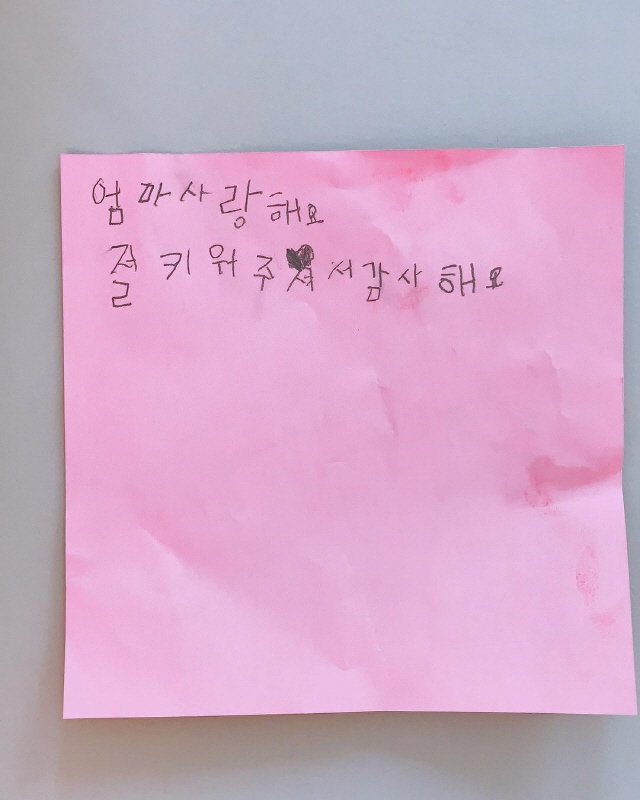 엄마사랑해요
절 키워주셔서감사해요